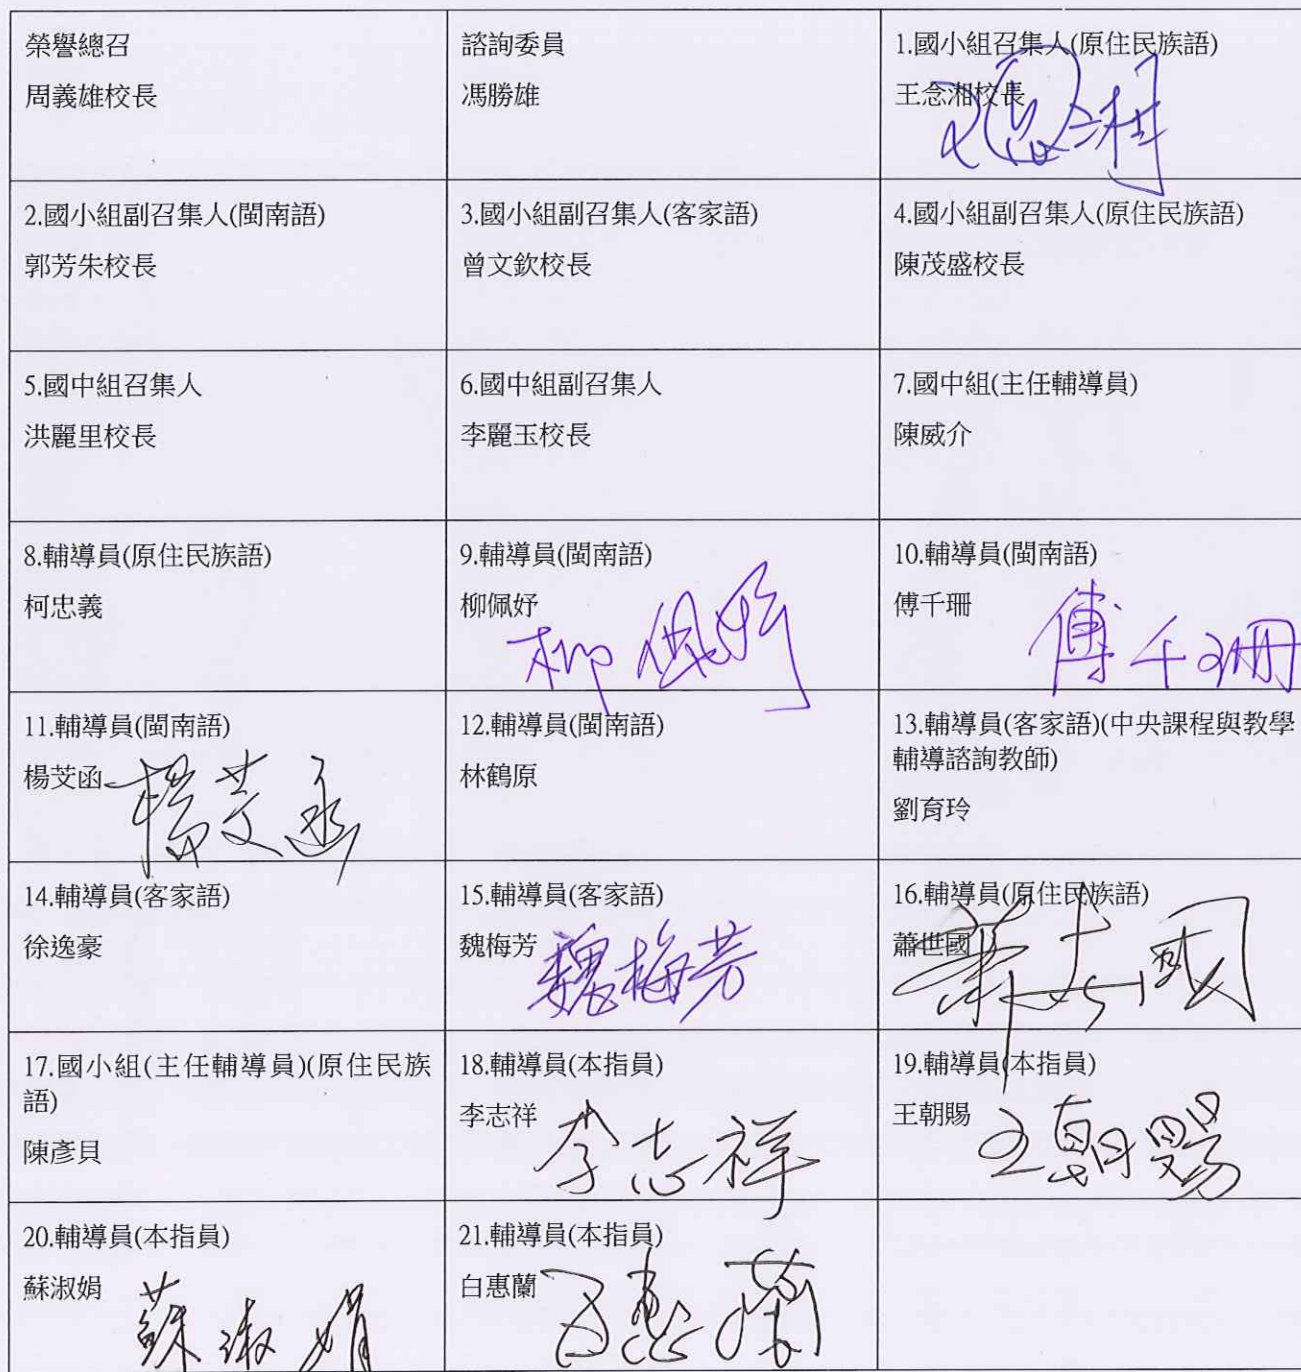 榮譽總召
周義雄校長
諮詢委員
馮勝雄
1.國小組召集人(原住民族語)
王念湘校長
王念湘
2.國小組副召集人(閩南語)
郭芳朱校長
3.國小組副召集人(客家語)
曾文欽校長
4.國小組副召集人(原住民族語)
陳茂盛校長
5.國中組召集人
洪麗里校長
6.國中組副召集人
李麗玉校長
7.國中組(主任輔導員)
陳威介
8.輔導員(原住民族語)
柯忠義
9.輔導員(閩南語)
柳佩妤
柳佩妤
10.輔導員(閩南語)
傅千珊
傅千珊
11.輔導員(閩南語)
楊芠函
楊芠函
12.輔導員(閩南語)
林鶴原
13.輔導員(客家語)(中央課程與教學
輔導諮詢教師)
劉育玲
14.輔導員(客家語)
徐逸豪
15.輔導員(客家語)
魏梅芳
魏梅芳
16.輔導員(原住民族語)
蕭世國
蕭世國
17.國小組(主任輔導員)(原住民族
語)
陳彥貝
18.輔導員(本指員)
李志祥
李志祥
19.輔導員(本指員)
王朝賜
王朝賜
20.輔導員(本指員)
蘇淑娟
蘇淑娟
21.輔導員(本指員)
白惠蘭
白惠蘭